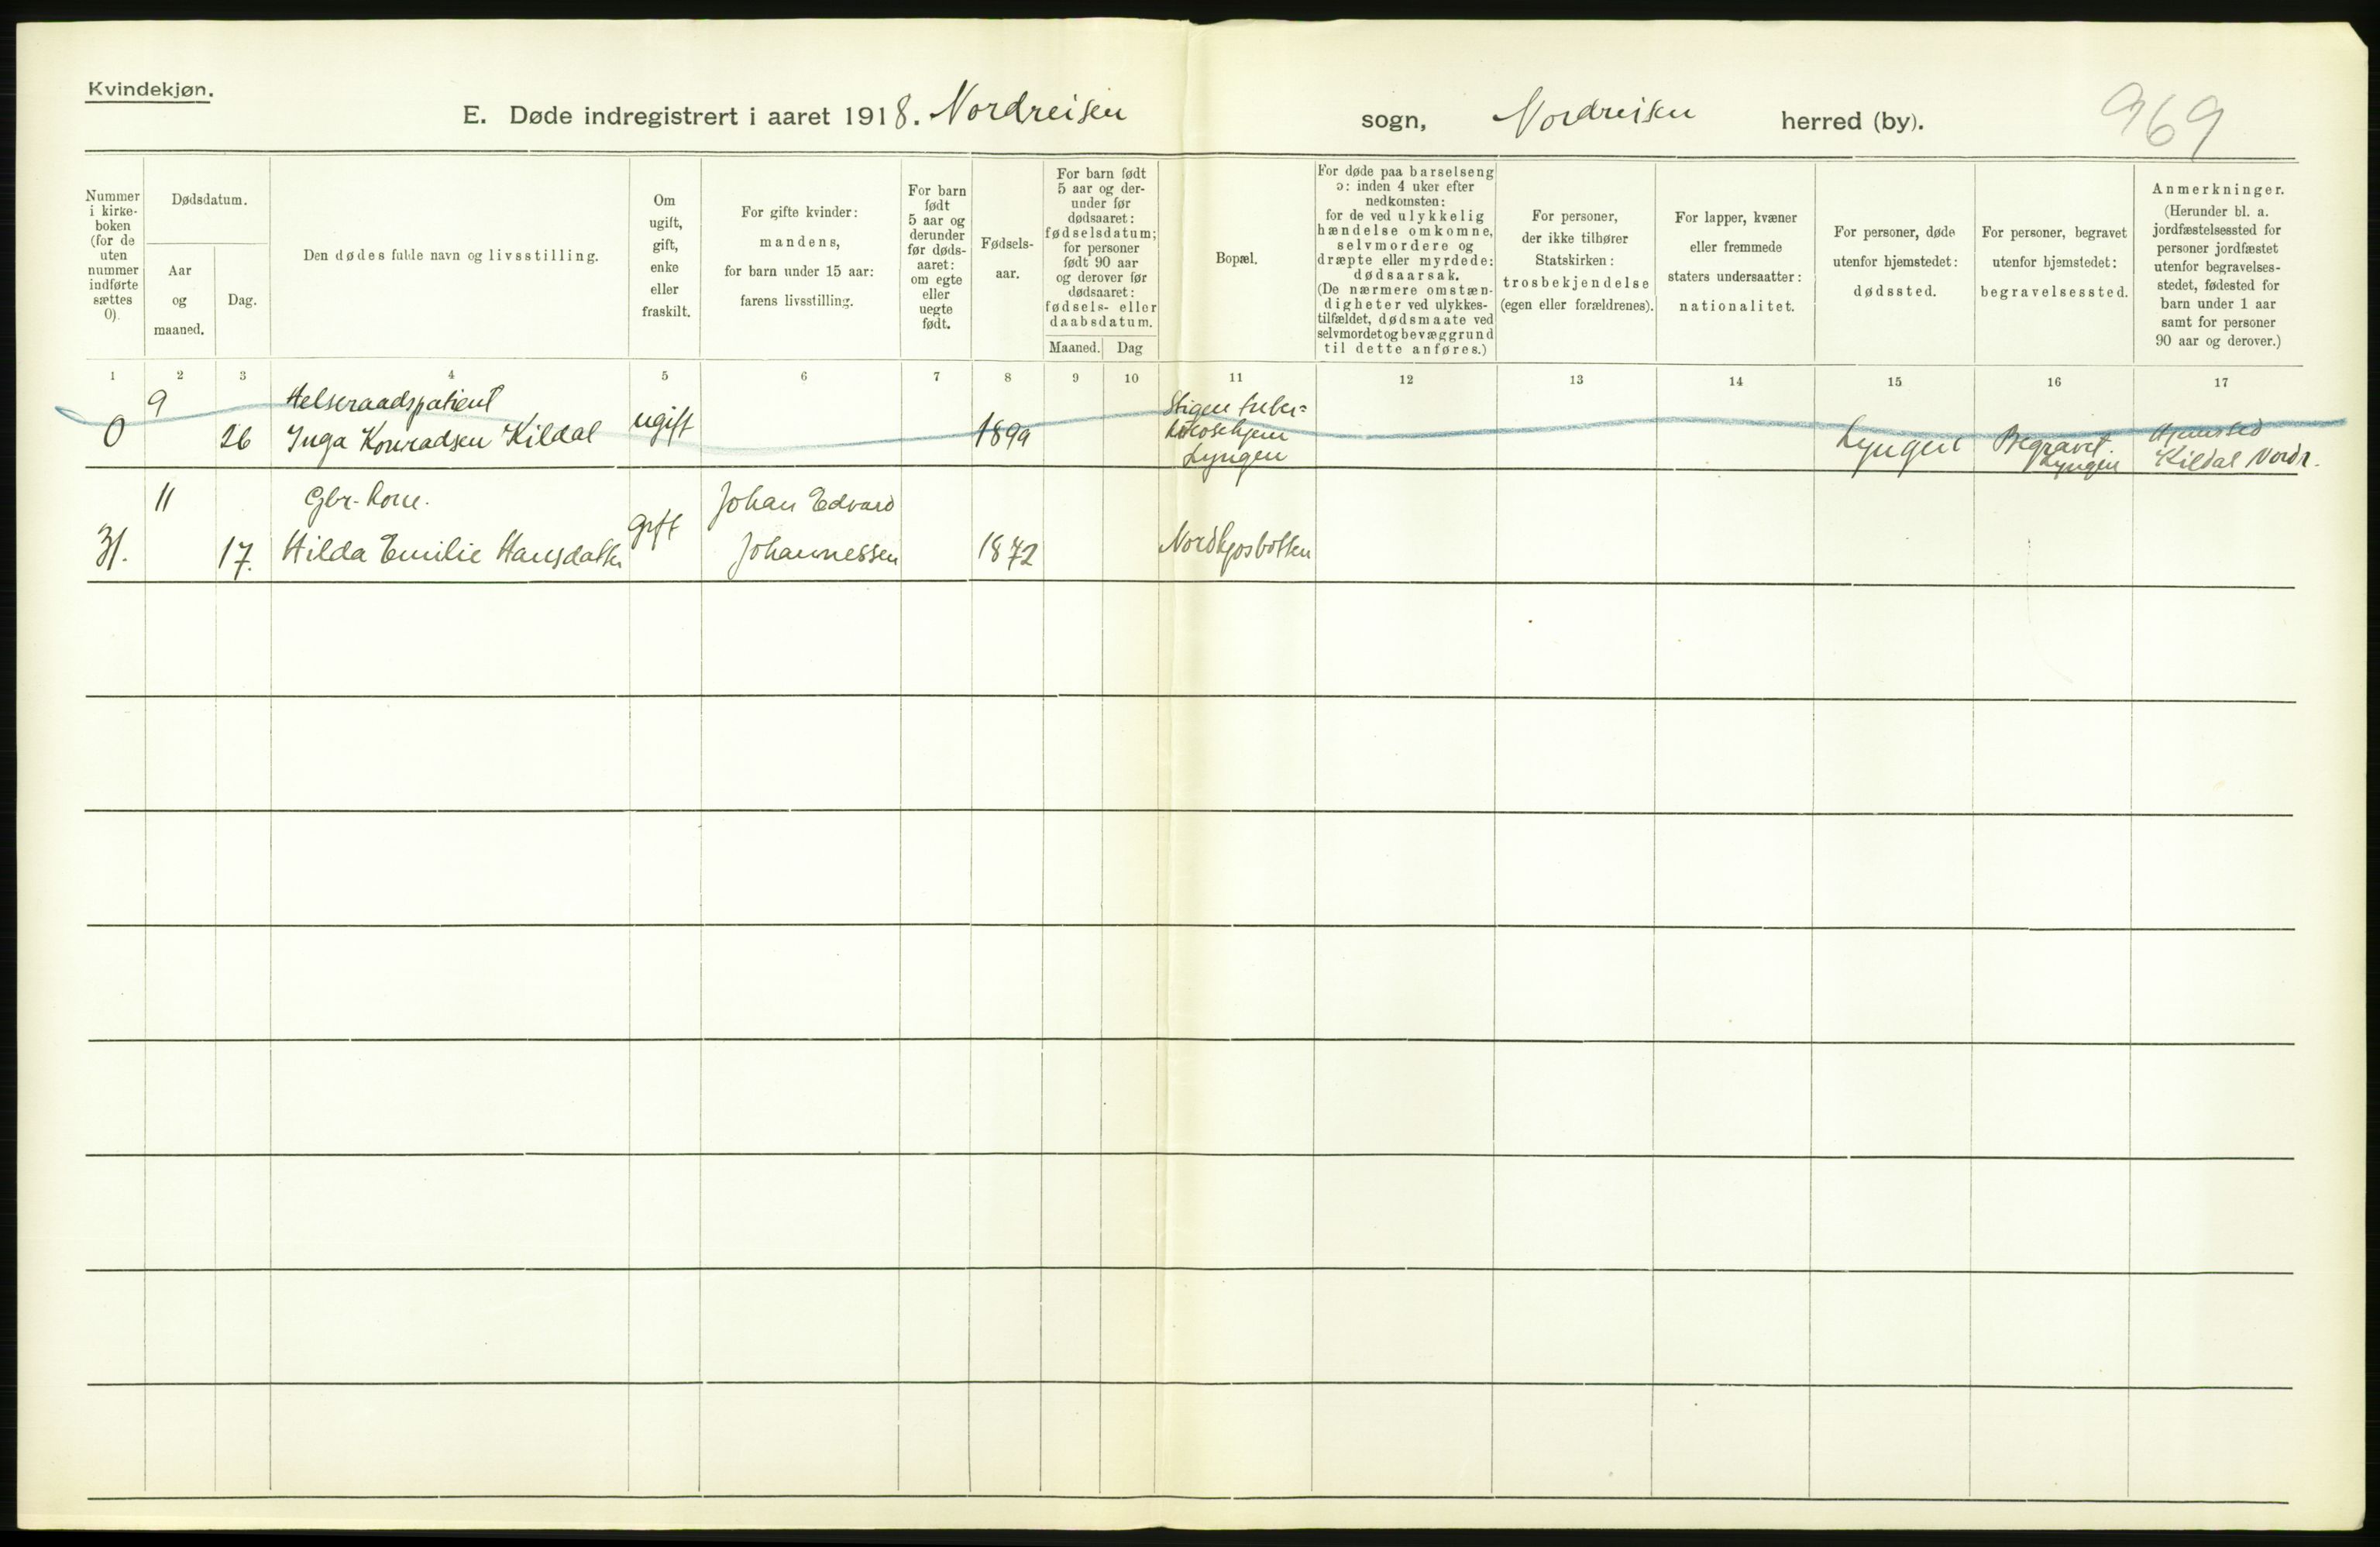 Kvindekjøn.
E. Døde indregistrert i aaret 1918. Nordreisen sogn, Nordreisen herred (by).
969
Nummer
i kirke-
boken
(for de
uten
nummer
indførte
sættes
0).
Dødsdatum.
Aar
og
maaned.
Dag.
Den dødes fulde navn og livsstilling.
Om
ugift,
gift,
enke
eller
fraskilt.
For gifte kvinder:
mandens,
for barn under 15 aar:
farens livsstilling.
For barn
født
5 aar og
derunder
før døds-
aaret:
om egte
eller
uegte
født.
Fødsels-
aar.
For barn født
5 aar og der-
under før
dødsaaret:
fødselsdatum;
for personer
født 90 aar
og derover før
dødsaaret:
fødsels- eller
daabsdatum.
Maaned. Dag
Bopæl.
For døde paa barselseng
ɔ: inden 4 uker efter
nedkomsten:
for de ved ulykkelig
hændelse omkomne,
selvmordere og
dræpte eller myrdede:
dødsaarsak.
(De nærmere omstæn-
digheter ved ulykkes-
tilfældet, dødsmaate ved
selvmordet og bevæggrund
til dette anføres.)
For personer,
der ikke tilhører
Statskirken:
trosbekjendelse
(egen eller forældrenes).
For lapper, kvæner
eller fremmede
staters undersaatter:
nationalitet.
For personer, døde
utenfor hjemstedet:
dødssted.
For personer, begravet
utenfor hjemstedet:
begravelsessted.
Anmerkninger.
(Herunder bl. a.
jordfæstelsessted for
personer jordfæstet
utenfor begravelses-
stedet, fødested for
barn under 1 aar
samt for personer
90 aar og derover.)
1 2 3 4 5 6 7 8 9 10 11 12 13 14 15 16 17
9
Helseraadspatient
0 26 Inga Konradsen Kildal
ugift
1899
Stigen tuber=
kulosehjem
Lyngen
Lyngen
Begravet
Lyngen
Hjemsted
Kildal Nordr.
11
Gbr. kone.
31. 17. Hilda Emilie Hansdatter
gift
Johan Edvard
Johannessen
1872
Nordkjosbotten